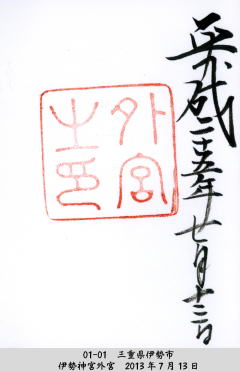 平成二十五年七月十三日
外宮之印
01-01 三重県伊勢市
伊勢神宮外宮 2013年7月13日